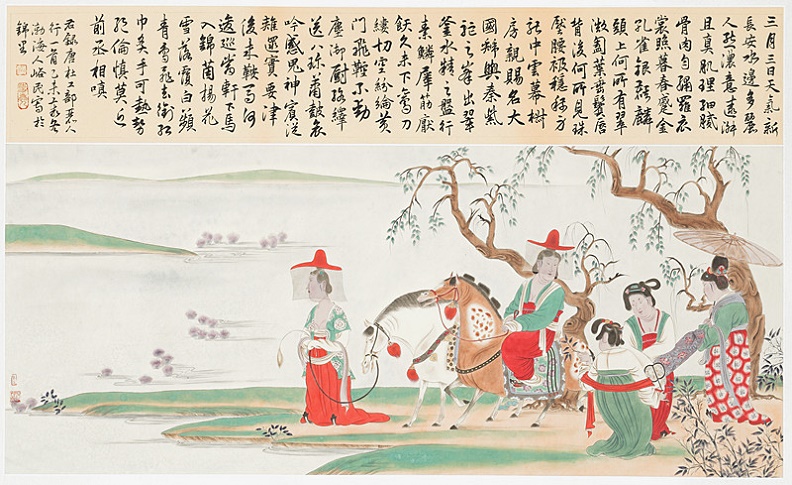 三月三日天氣新
長安水邊多麗
人態濃意遠淑
且真肌理細膩
骨肉勻繡羅衣
裳照暮春蹙金
孔雀銀麒麟
頭上何所有翠
微㔩葉垂鬢唇
背後何所見珠
壓腰衱穩稱身
就中雲幕椒
房親賜名大
國虢與秦紫
駝之峰出翠
釜水精之盤行
素鱗犀箸厭
飫久未下鸞刀
縷切空紛綸黃
門飛鞚不動
塵御廚絡繹
送八珍簫鼓哀
吟感鬼神賓從
雜遝實要津
後來鞍馬何
逡巡當軒下馬
入錦茵楊花
雪落覆白蘋
青鳥飛去銜紅
巾炙手可熱勢
絕倫慎莫近
前丞相嗔
右錄唐杜工部麗人
行一首乙未
渤海人寫於
錦